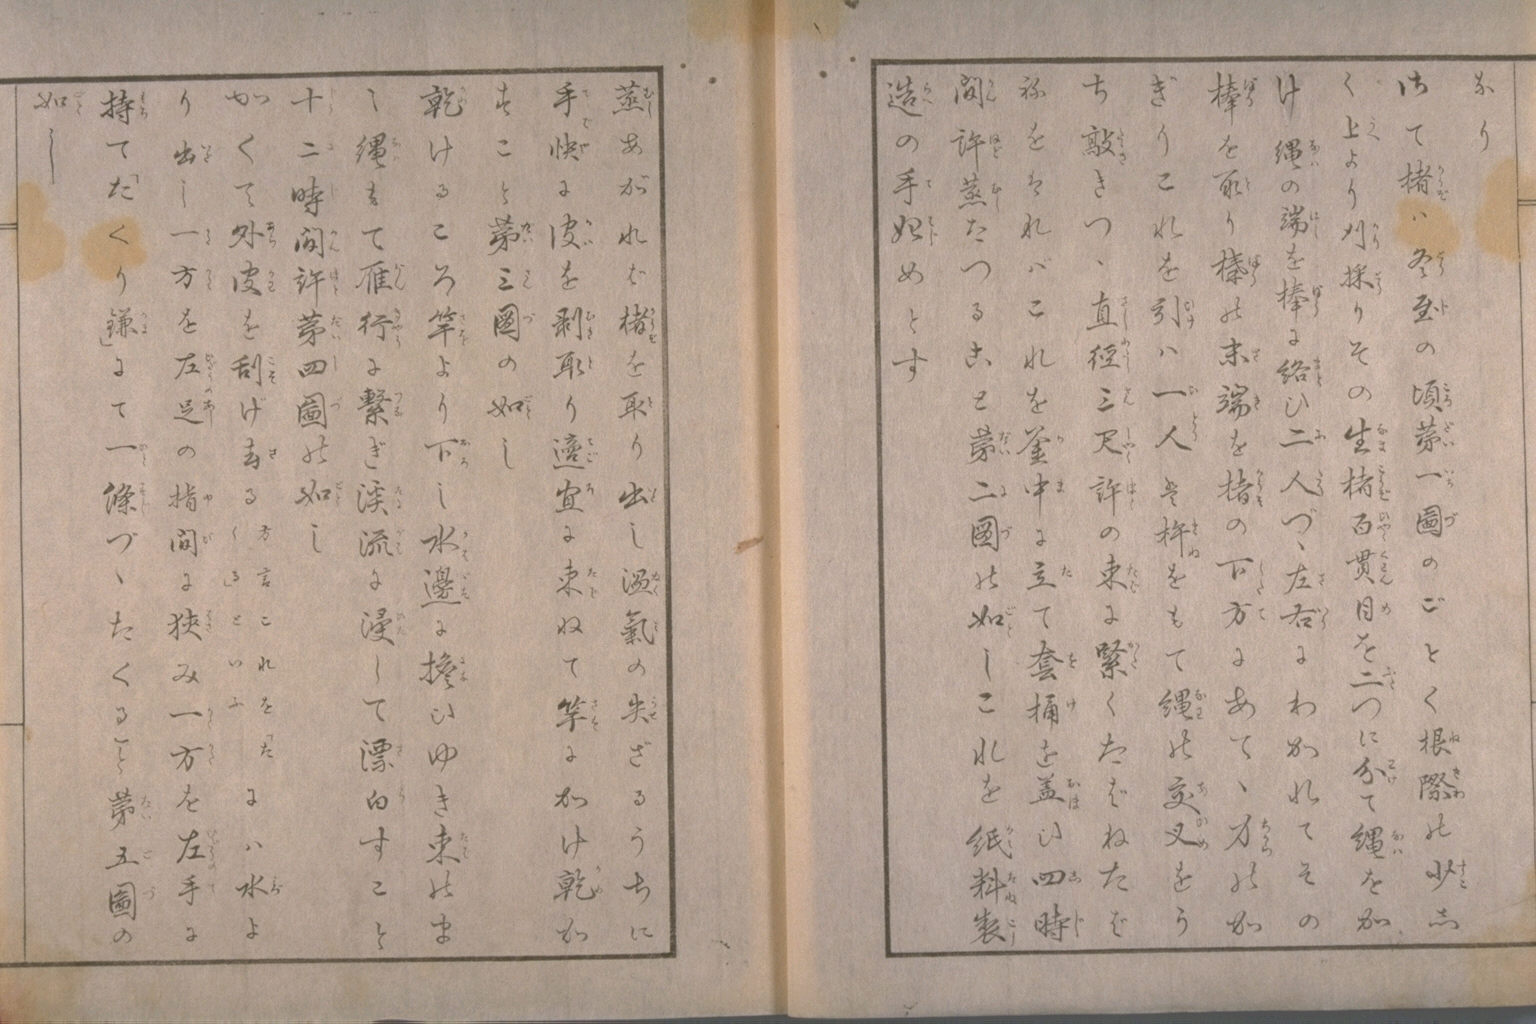 なり
さて楮ハ冬至の頃第一圖のごとく根際の少し
く上より刈採りその生楮百貫目を二つに分て縄をか
け縄の端を棒に絡ひ二人づゝ左右にわかれてその
棒を取り棒の末端を楮の下方にあてゝ力のか
ぎりこれを引ハ一人ハ杵をもて縄の交叉をう
ち敲きつゝ直徑三尺許の束に緊くたばねたば
ねをはれバこれを釜中に立て套桶を盖ひ四時
間許蒸たつること第二圖の如しこれを紙料製
造の手始めとす
蒸あがれば楮を取り出し温氣の失ざるうちに
手快に皮を剥取り適宜に束ねて竿にかけ乾か
すこと第三圖の如し
乾けるころ竿より下し水邊に擔ひゆき束のま
ゝ縄もて雁行に繋ぎ渓流に浸して漂白すこと
十二時間許第四圖の如し
かくて外皮を刮げ去る
方言これを「た
くる」といふ
にハ水よ
り出し一方を左足の指間に狭み一方を左手に
持て「たくり鎌」にて一條づゝたくること第五圖の
如し